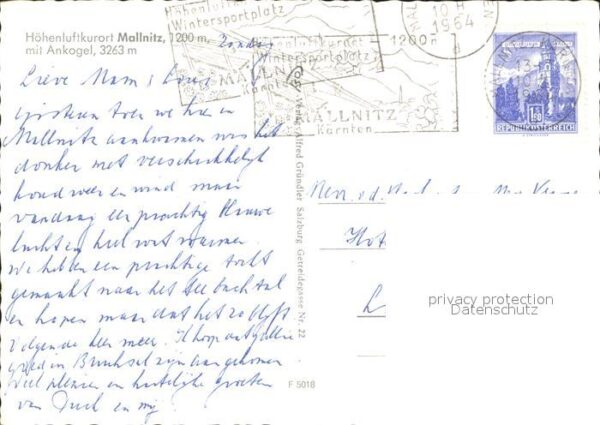 Höhenluftkurort Mallnitz, 1200 m,
mit Ankogel, 3263 m
Zondag
Wintersportplatz
MALLNITZ
Kärnten
Höhenluftkurort 1200 m
Wintersportplatz
MALLNITZ
Kärnten
10
1964
1.50
REPUBLIK ÖSTERREICH
Lieve Mam
gisteren toen we hier in
Mallnitz aankwamen was het
donker met verschrikkelijk
koud weer en wind maar
vandaag een prachtig blauwe
lucht en heel wat warmer.
We hebben een prachtige tocht
gemaakt naar het Seebachtal
en hopen maar dat het zo blijft
Volgende keer meer. Ik hoop dat jullie
goed in Brussel zijn aangekomen.
Veel plezier en hartelijke groeten
van en mij
Verlag Alfred Gründler Salzburg, Getreidegasse Nr. 22
F 5018
Hot
L
privacy protection
Datenschutz